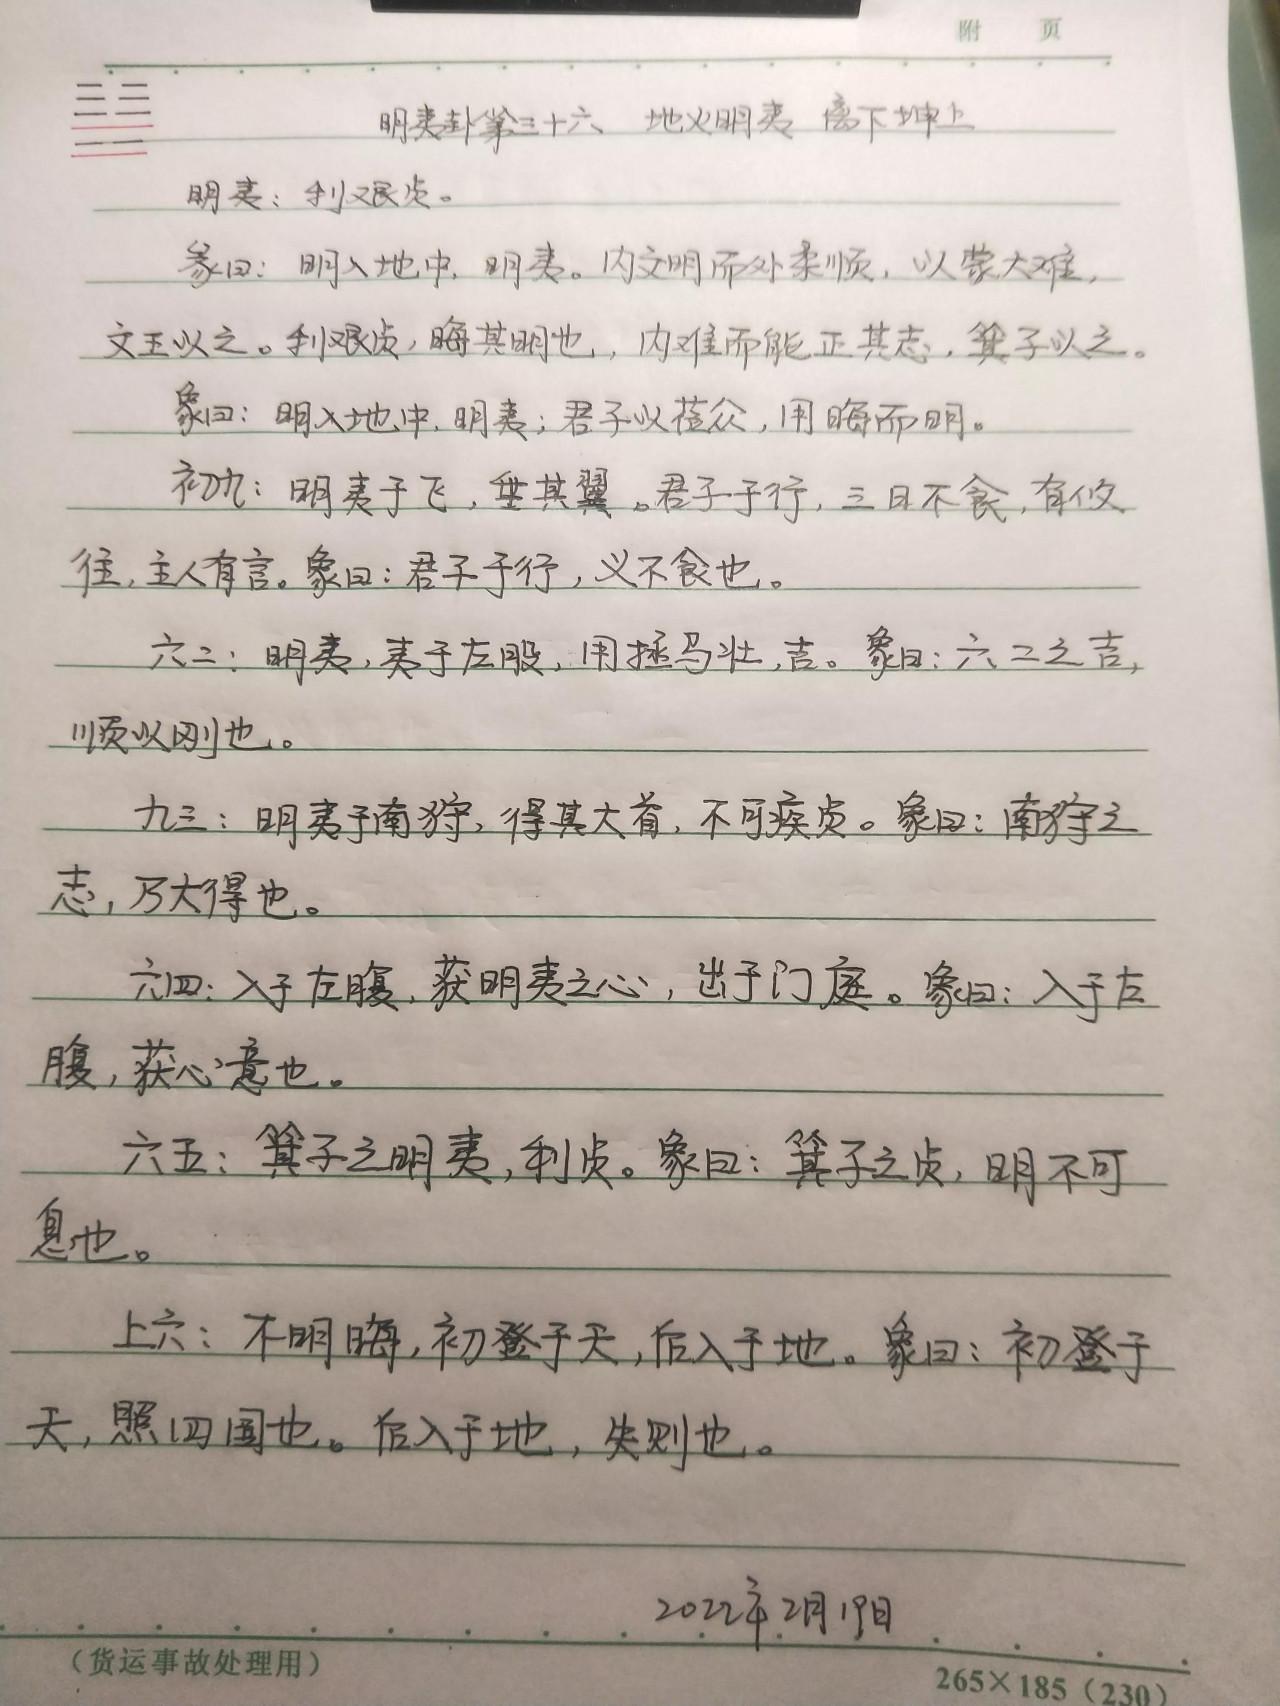 附 页
明夷卦第三十六 地火明夷 离下坤上
明夷：利艰贞。
彖曰：明入地中，明夷。内文明而外柔顺，以蒙大难，
文王以之。利艰贞，晦其明也，内难而能正其志，箕子以之。
象曰：明入地中，明夷；君子以莅众，用晦而明。
初九：明夷于飞，垂其翼。君子于行，三日不食，有攸
往，主人有言。象曰：君子于行，义不食也。
六二：明夷，夷于左股，用拯马壮，吉。象曰：六二之吉，
顺以刚也。
九三：明夷于南狩，得其大首，不可疾贞。象曰：南狩之
志，乃大得也。
六四：入于左腹，获明夷之心，出于门庭。象曰：入于左
腹，获心意也。
六五：箕子之明夷，利贞。象曰：箕子之贞，明不可
息也。
上六：不明晦，初登于天，后入于地。象曰：初登于
天，照四国也。后入于地，失则也。
2022年2月19日
（货运事故处理用）
265×185（230）